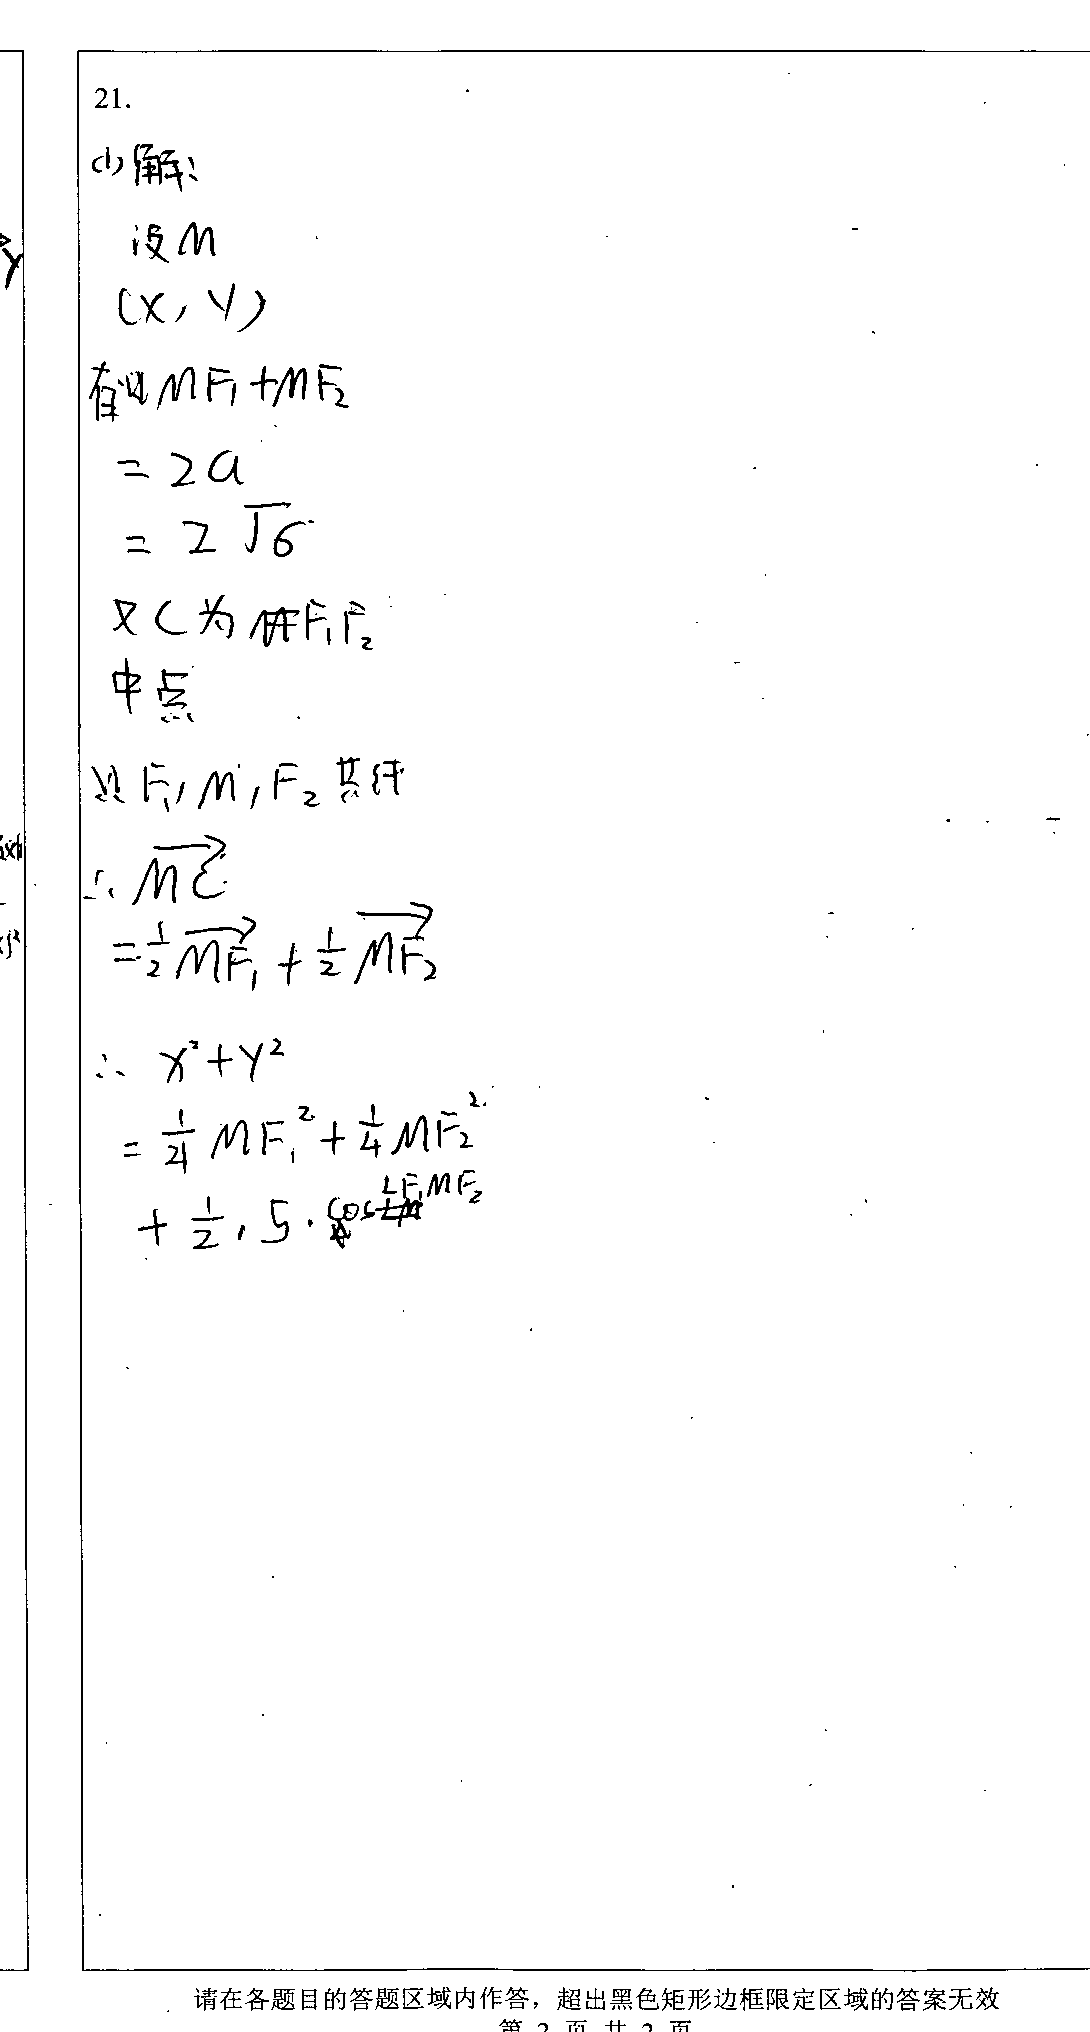 21.
(1)解:
设M
(X, Y)
有 MF₁+MF₂
= 2a
= 2√6
又C为 F₁F₂
中点
且 F₁, M, F₂ 共线
∴ \overrightarrow{MC}
= \frac{1}{2}\overrightarrow{MF₁} + \frac{1}{2}\overrightarrow{MF₂}
∴ X²+Y²
= \frac{1}{4} MF₁² + \frac{1}{4} MF₂²
+ \frac{1}{2} · 5 · cos∠F₁MF₂
请在各题目的答题区域内作答，超出黑色矩形边框限定区域的答案无效
第 2 页 共 2 页